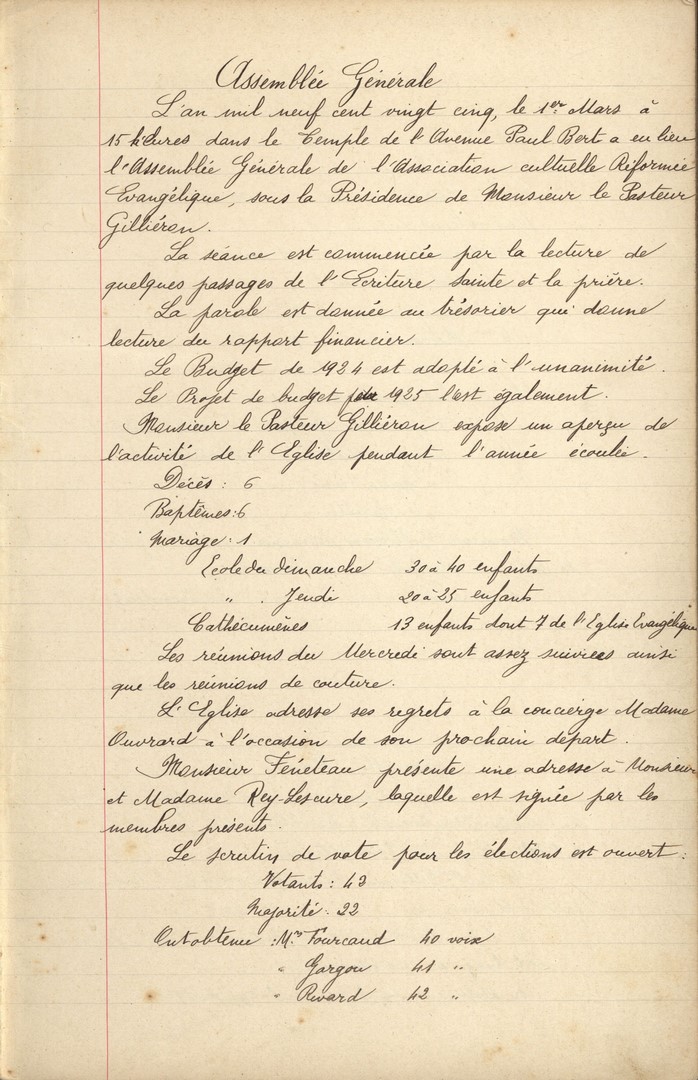 Assemblée Générale
L'an mil neuf cent vingt cinq, le 1er Mars à
15 heures dans le Temple de l'Avenue Paul Bert a eu lieu
l'Assemblée Générale de l'Association cultuelle Réformée
Evangélique, sous la Présidence de Monsieur le Pasteur
Gilliéron.
La séance est commencée par la lecture de
quelques passages de l'Ecriture Sainte et la prière.
La parole est donnée au trésorier qui donne
lecture du rapport financier.
Le Budget de 1924 est adopté à l'unanimité.
Le Projet de budget pour 1925 l'est également.
Monsieur le Pasteur Gilliéron expose un aperçu de
l'activité de l'Eglise pendant l'année écoulée.
Décès : 6
Baptêmes : 6
Mariage : 1
Ecole du dimanche 30 à 40 enfants
" Jeudi 20 à 25 enfants
Cathécumènes 13 enfants dont 7 de l'Eglise Evangélique
Les réunions du Mercredi sont assez suivies ainsi
que les réunions de couture.
L'Eglise adresse ses regrets à la concierge Madame
Ouvrard à l'occasion de son prochain départ.
Monsieur Féneteau présente une adresse à Monsieur
et Madame Rey-Lescure, laquelle est signée par les
membres présents.
Le scrutin de vote pour les élections est ouvert :
Votants : 43
Majorité : 22
Ont obtenu : Mrs Fourcaud 40 voix
" Gorgou 41 "
" Rivard 42 "